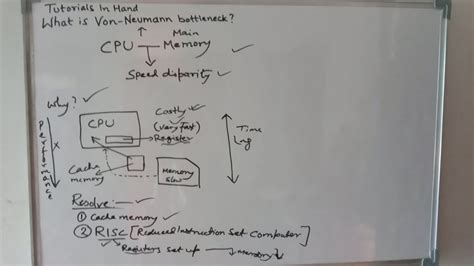 Tutorials In Hand
What is Von-Neumann bottleneck?
Main
CPU Memory
Speed disparity
Why?
Costly
(very fast)
CPU
Register
Performance
Time lag
Cache memory
Memory
slow
Resolve:
① Cache memory
② RISC [Reduced Instruction Set Computer]
Registers set up memory